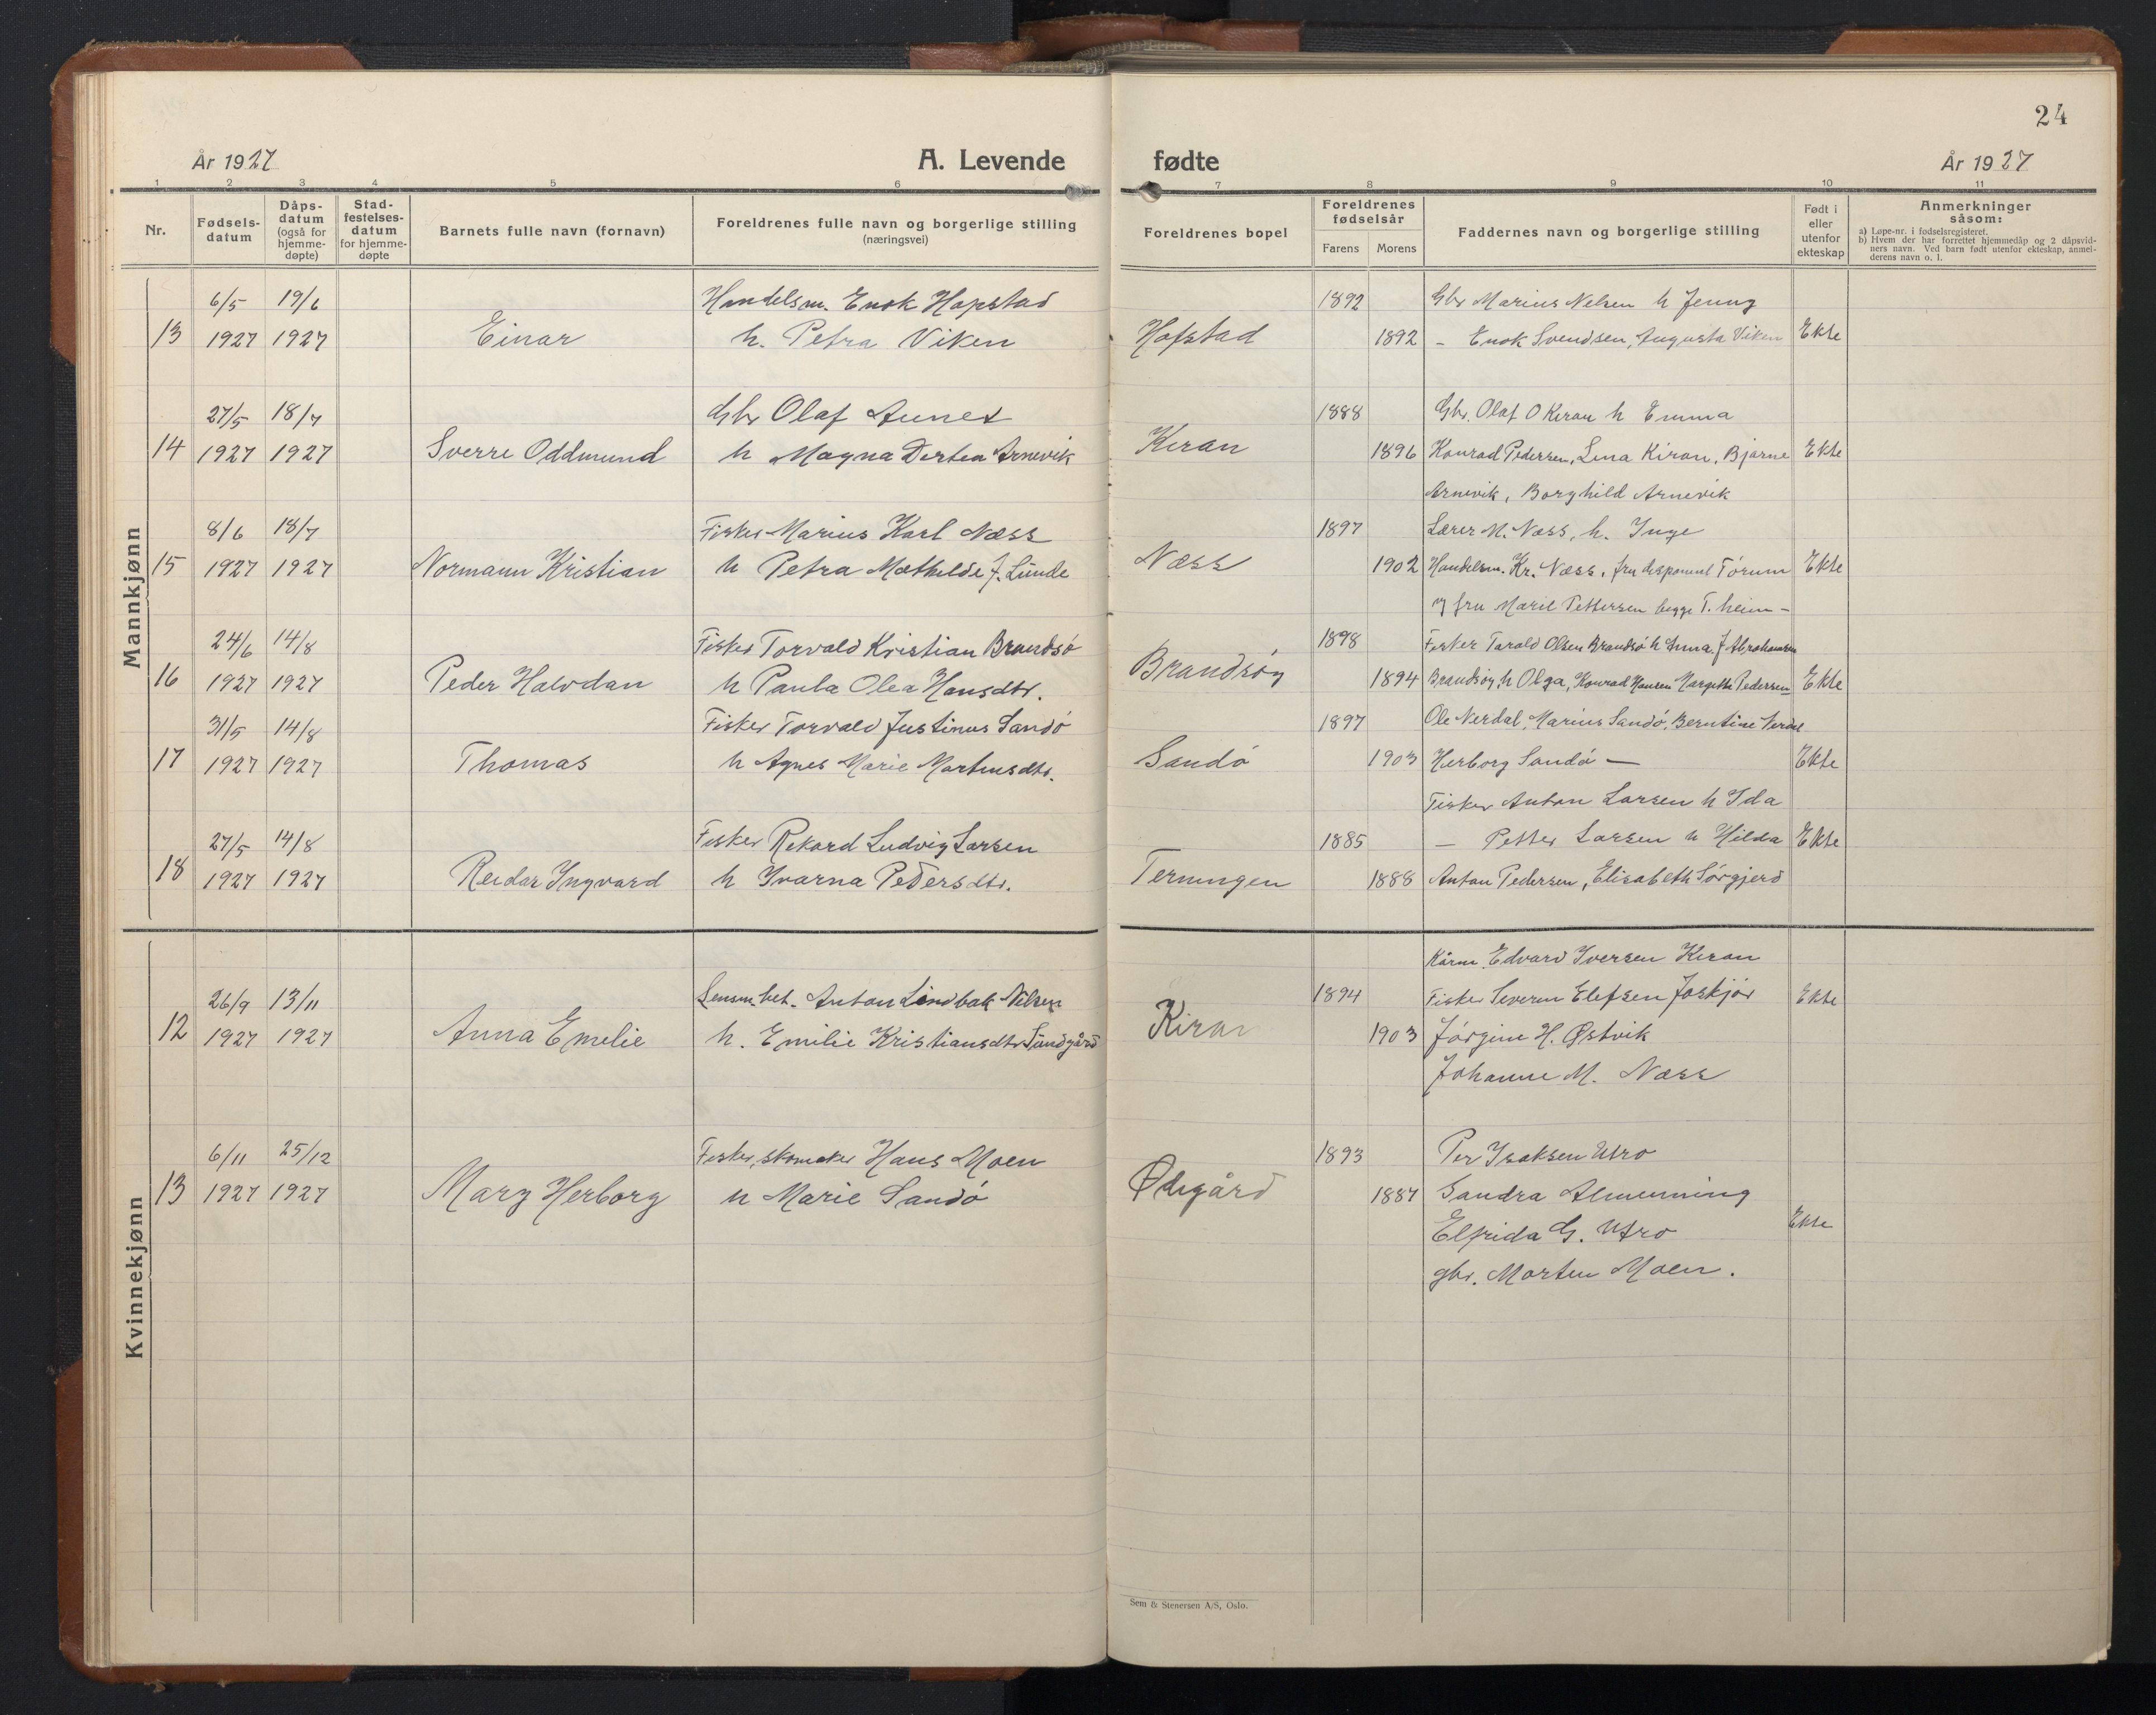 24
År 1927
A. Levende fødte
År 1927
1 2 3 4 5 6 7 8 9 10 11
Nr.
Fødsels-
datum
Dåps-
datum
(også for
hjemme-
døpte)
Stad-
festelses-
datum
for hjemme-
døpte
Barnets fulle navn (fornavn)
Foreldrenes fulle navn og borgerlige stilling
(næringsvei)
Foreldrenes bopel
Foreldrenes
fødselsår
Farens Morens
Faddernes navn og borgerlige stilling
Født i
eller
utenfor
ekteskap
Anmerkninger
såsom:
a) Løpe-nr. i fødselsregisteret.
b) Hvem der har forrettet hjemmedåp og 2 dåpsvid-
ners navn. Ved barn født utenfor ekteskap, anmel-
derens navn o. l.
Mannkjønn
6/5 19/6 Handelsm. Enok Hapstad 1892 Gbr Marius Nelsen h Jenny
13 1927 1927 Einar h. Petra Viken Hofstad 1892 – Enok Svendsen, Augusta Viken Ekte
27/5 18/7 Gbr Olaf Aunet 1888 Gbr. Olaf O Kiran h Emma
14 1927 1927 Sverre Oddmund h Magna Dortea Arnevik Kiran 1896 Konrad Pedersen, Lina Kiran, Bjarne Ekte
Arnevik, Borghild Arnevik
8/6 18/7 Fisker Marius Karl Næss 1897 Lærer M. Næss, h. Inge
15 1927 1927 Normann Kristian h Petra Mathilde J. Lunde Næss 1902 Handelsm. Kr. Næss, fru Tórum Ekte
og fru Maril Pettersen begge T.heim –
24/6 14/8 Fisker Torvald Kristian Brandsó 1898 Fisker Tarald Olsen Brandsó h Anna, J Abrahamsen
16 1927 1927 Peder Halvdan h Paula Olea Hansdtr. Brandsóy 1894 Brandsóy, h Olga, Konrad Hansen Margethe Pedersen Ekte
31/5 14/8 Fisker Torvald Justinus Sandó 1897 Ole Nerdal, Marius Sandó, Berntine
17 1927 1927 Thomas h Agnes Marie Martinsdtr. Sandó 1903 Herborg Sandó – Ekte
Fisker Anton Larsen h Ida
27/5 14/8 Fisker Rikard Ludvig Larsen 1885 – Petter Larsen h Hilda Ekte
18 1927 1927 Reidar Ingvard h Ivarna Pedersdtr. Terningen 1888 Anton Pedersen, Elisabeth Sórgjerd
Kvinnekjønn
Kårm. Edvard Iversen Kiran
26/9 13/11 Lensm. bet. Anton Lindbak Nilsen 1894 Fisker Severin Elefsen Foskjór Ekte
12 1927 1927 Anna Emelie h. Emilie Kristiansdtr Sundgård Kiran 1903 Jórgine H. Østvik
Johanne M. Næss
6/11 25/12 Fisker, skomaker Hans Moen 1893 Per Isaksen Utro
13 1927 1927 Mary Herborg h Marie Sandó Ødegård 1887 Sandra Almenning
Elfrida G. Utro Ekte
gbr. Morten Moen.
Sem & Stenersen A/S, Oslo.